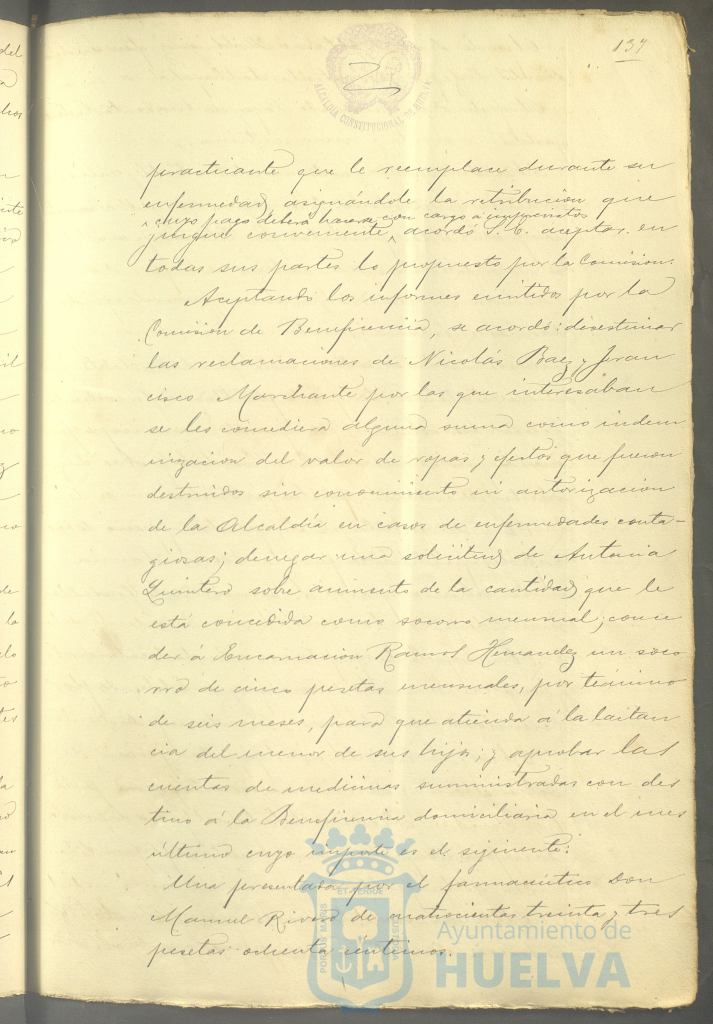 137
ALCALDÍA CONSTITUCIONAL DE HUELVA
practicante que le reemplace durante su
enfermedad, asignándole la retribución que
cuyo pago deberá hacerse con cargo á imprevistos
juzgue conveniente, acordó S. E. aceptar en
todas sus partes lo propuesto por la Comisión.
Aceptando los informes emitidos por la
Comisión de Beneficencia, se acordó: desestimar
las reclamaciones de Nicolás Baez y Fran
cisco Marchante por las que interesaban
se les concediera alguna suma como indem
nización del valor de ropas y efectos que fueron
destruidos sin conocimiento ni autorización
de la Alcaldía en casos de enfermedades conta-
giosas; denegar una solicitud de Antonia
Quintero sobre aumento de la cantidad que le
está concedida como socorro mensual; conce
der á Encarnación Ramos Hernandez un soco
rro de cinco pesetas mensuales, por término
de seis meses, para que atienda á la lactan
cia del menor de sus hijos; y aprobar las
cuentas de medicinas suministradas con des
tino á la Beneficencia domiciliaria en el mes
último cuyo importe es el siguiente:
Una presentada por el farmacéutico Don
Manuel Rivero de cuatrocientas treinta y tres
pesetas ochenta céntimos.
Ayuntamiento de
HUELVA